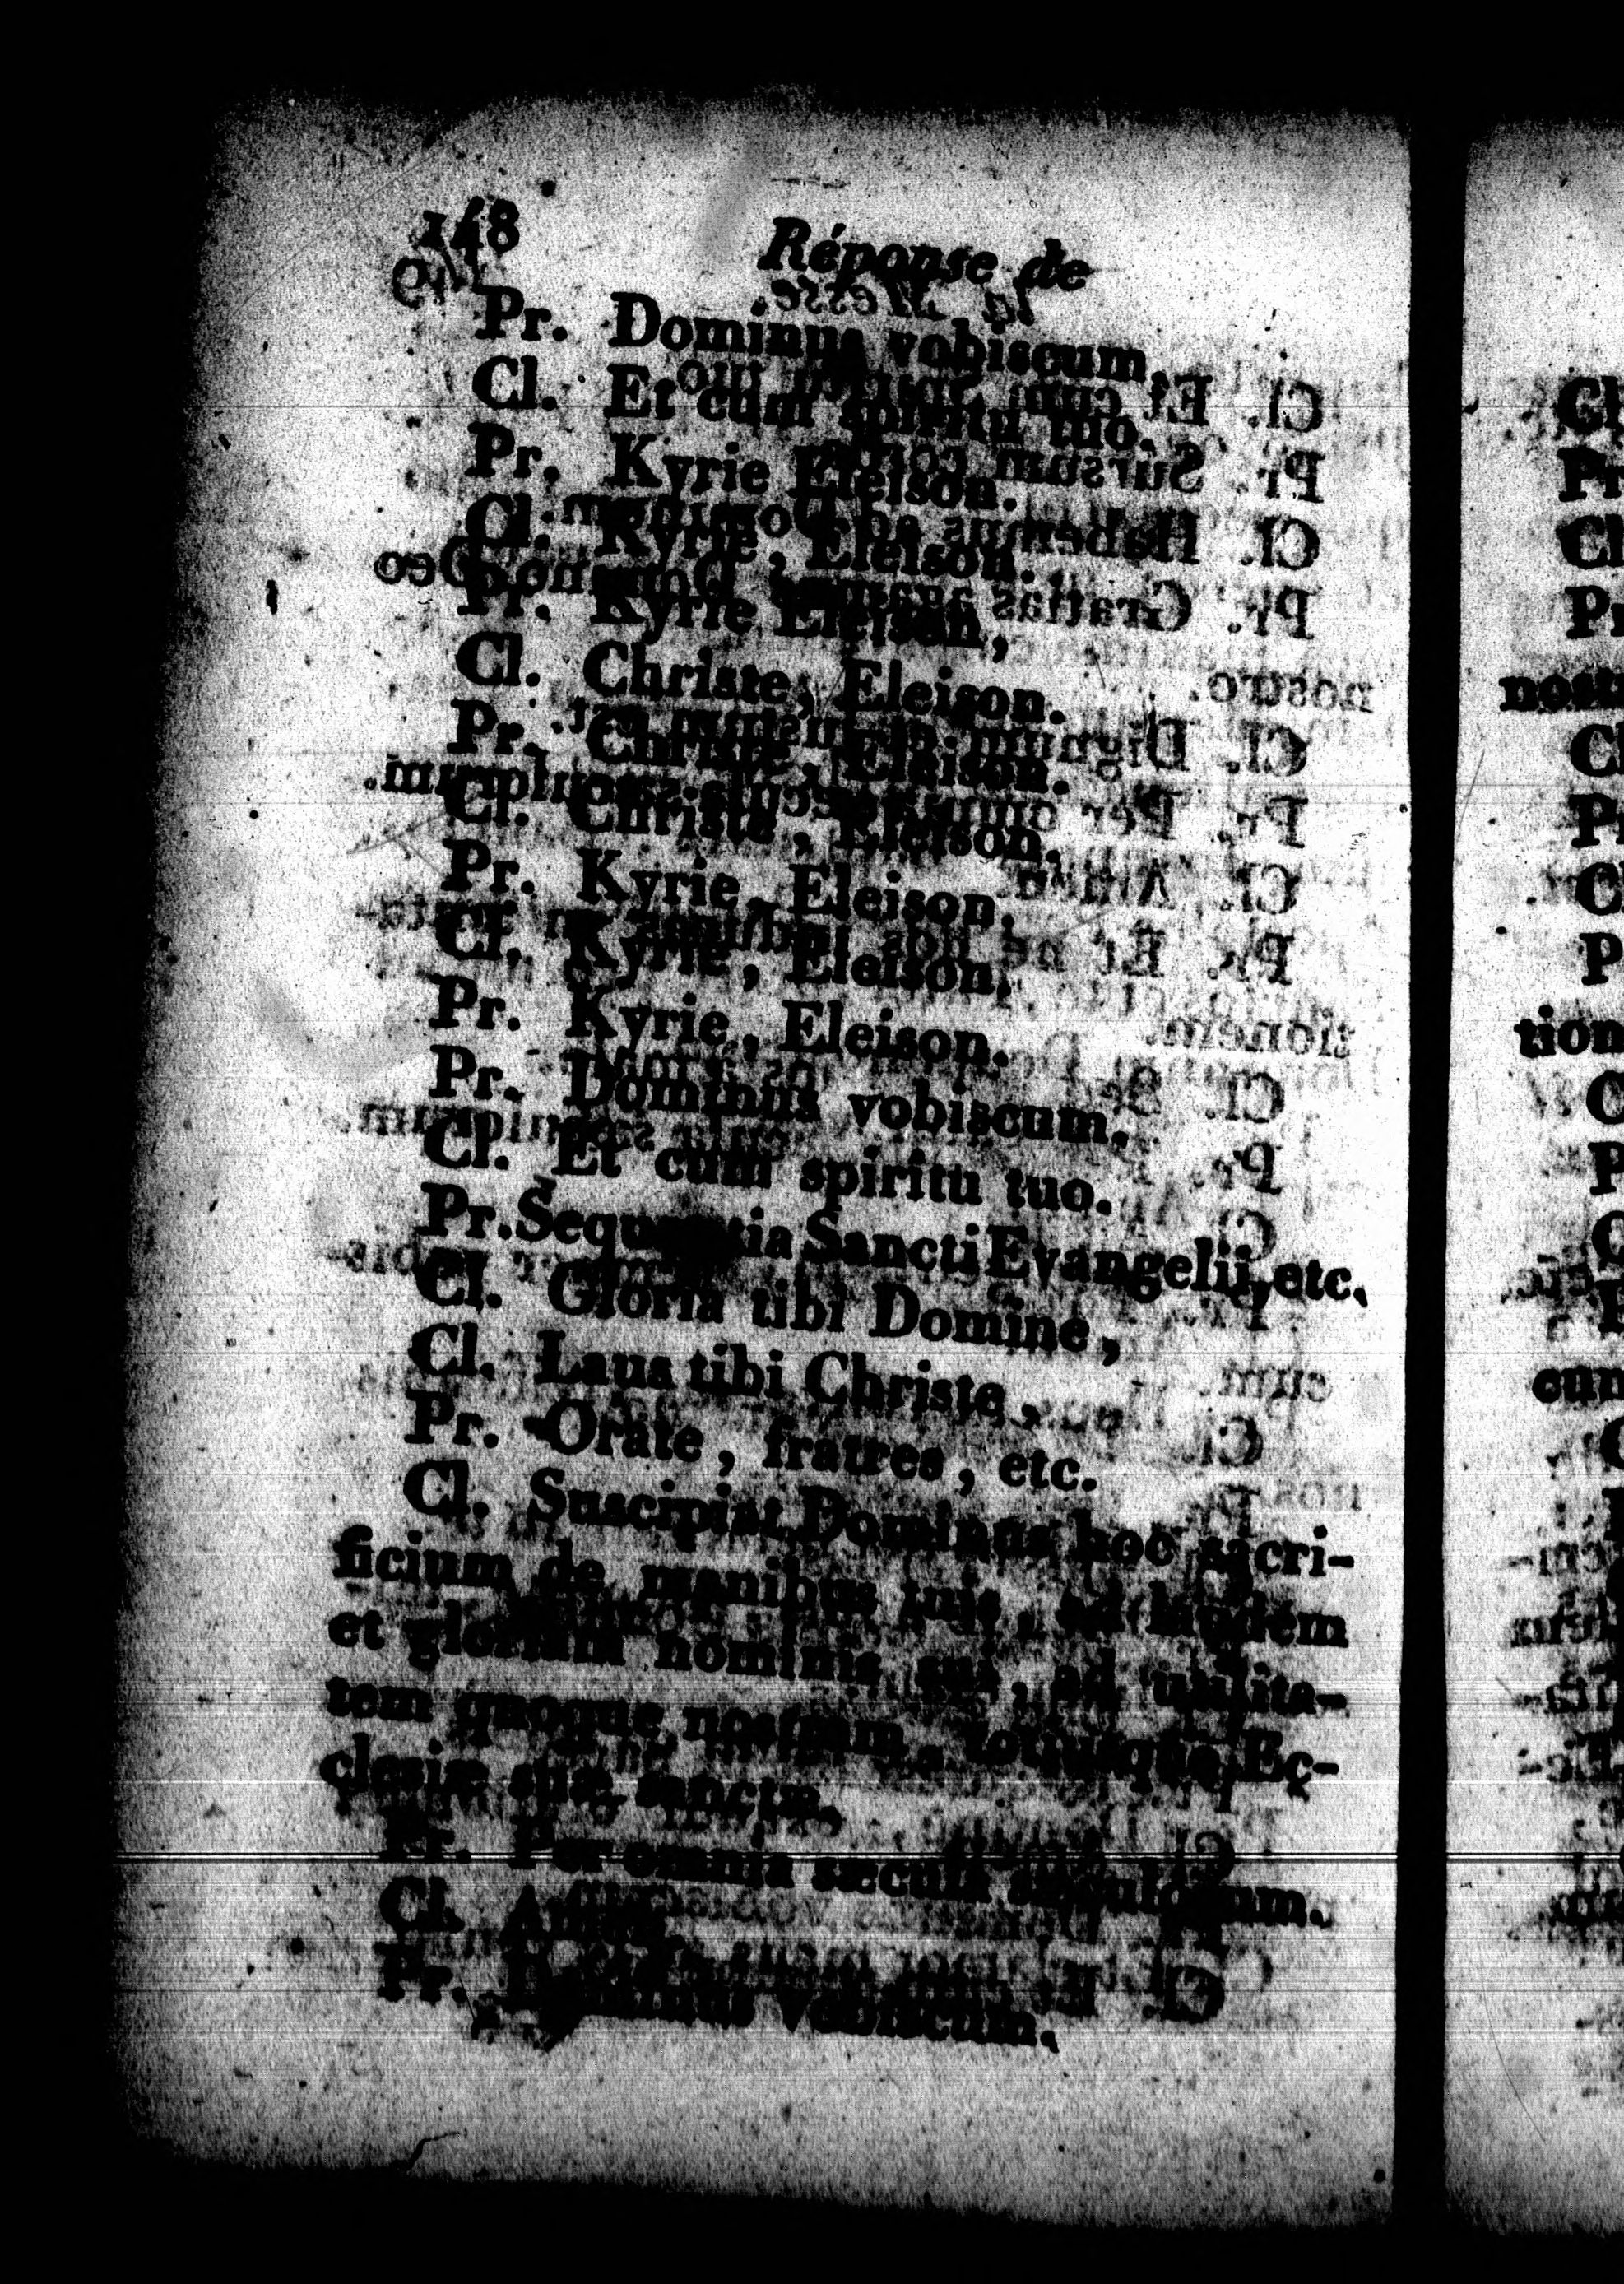 148 Réponse de
Pr. Dominus vobiscum.
Cl. Et cum spiritu tuo.
Pr. Kyrie Eleison.
Cl. Kyrie, Eleison.
Pr. Kyrie Eleison,
Cl. Christe, Eleison.
Pr. Christe, Eleison.
Cl. Christe, Eleison.
Pr. Kyrie, Eleison.
Cl. Kyrie, Eleison.
Pr. Kyrie, Eleison.
Pr. Dominus vobiscum.
Cl. Et cum spiritu tuo.
Pr. Sequentia Sancti Evangelii, etc.
Cl. Gloria tibi Domine,
Cl. Laus tibi Christe,
Pr. Orate, fratres, etc.
Cl. Suscipiat Dominus hoc sacri-
ficium de manibus tuis, ad laudem
et gloriam nominis sui, ad utilita-
tem quoque nostram, totiusque Ec-
clesiæ suæ sanctæ.
Pr. Per omnia sæcula sæculorum.
Cl. Amen.
Pr. Dominus vobiscum.